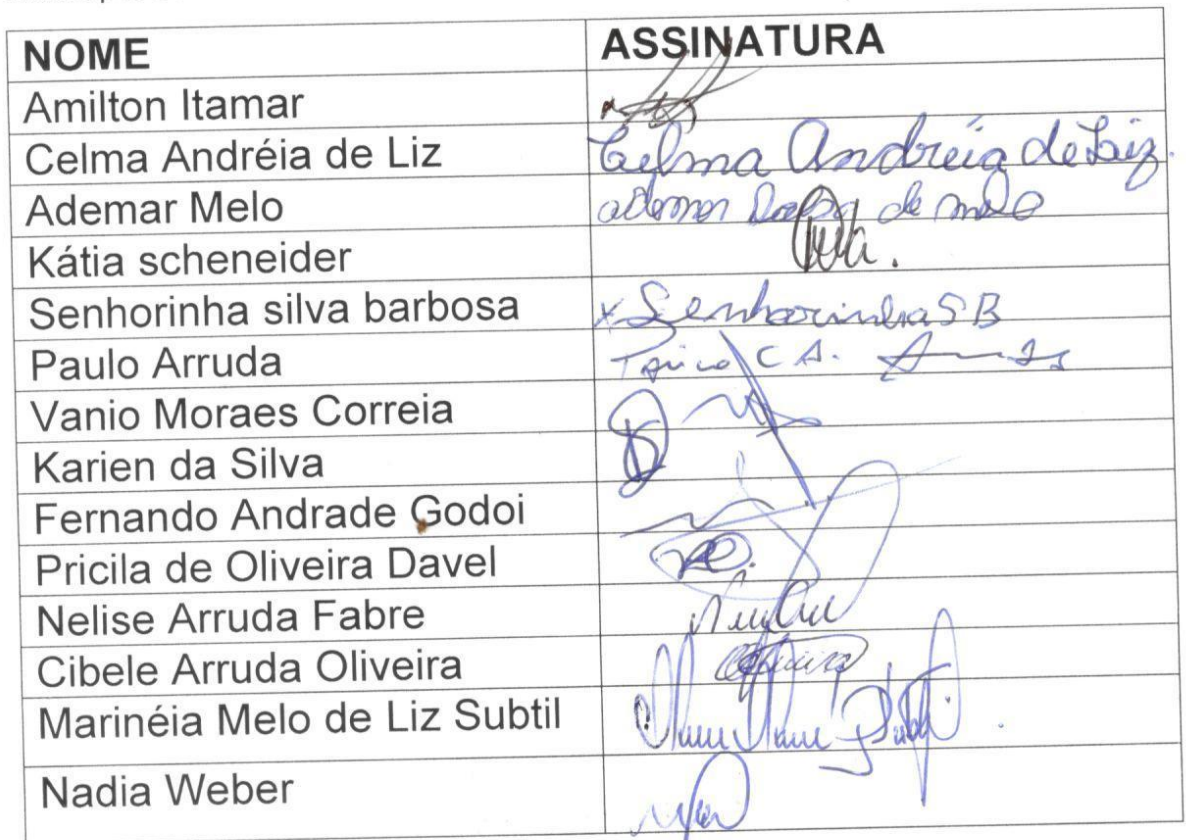 NOME ASSINATURA
Amilton Itamar
Celma Andréia de Liz Celma Andreia de Liz.
Ademar Melo de melo
Kátia scheneider
Senhorinha silva barbosa x Senhorinha SB
Paulo Arruda C A.
Vanio Moraes Correia
Karien da Silva
Fernando Andrade Godoi
Pricila de Oliveira Davel
Nelise Arruda Fabre
Cibele Arruda Oliveira
Marinéia Melo de Liz Subtil
Nadia Weber